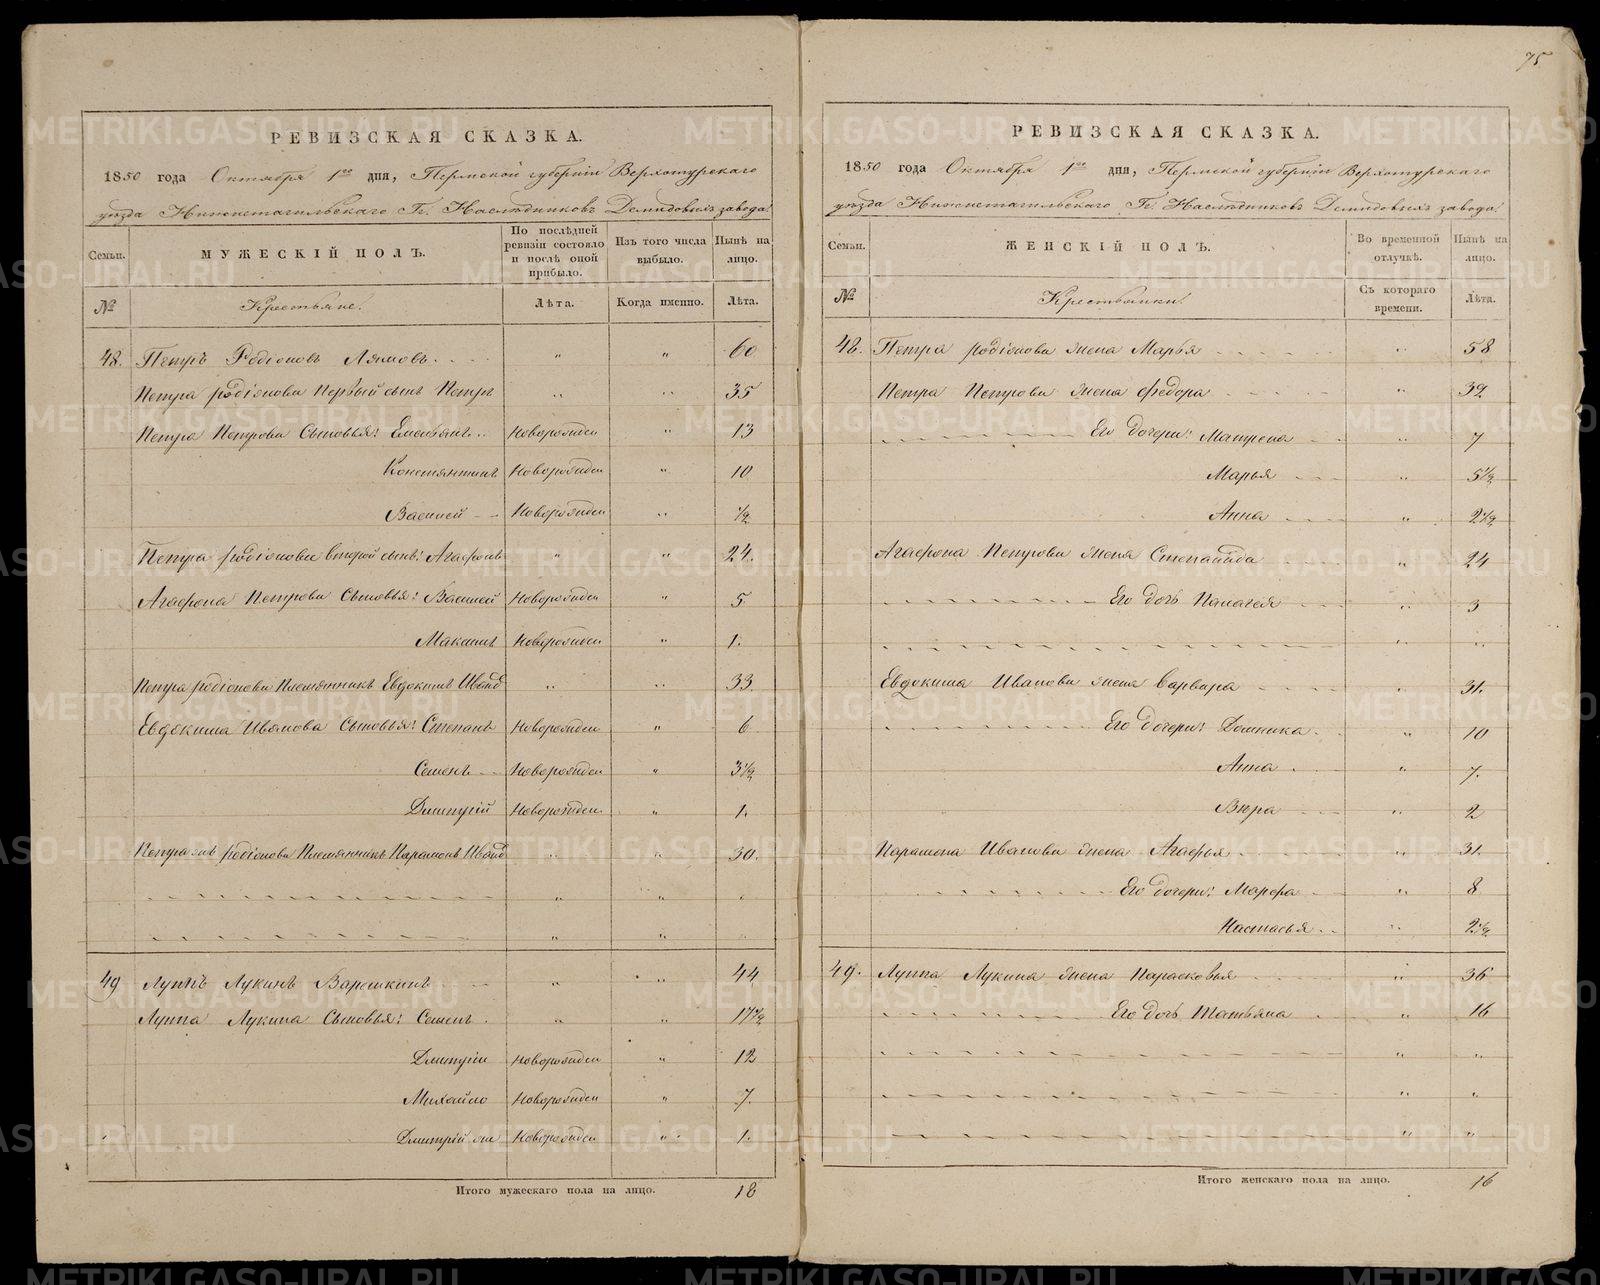 75
РЕВИЗСКАЯ СКАЗКА.
1850 года Октября 1го дня, Пермской губерніи Верхотурскаго
уезда Нижнетагильскаго Гг. Наследниковъ Демидовыхъ завода.
Семьи.
МУЖЕСКІЙ ПОЛЪ.
По послѣдней ревизіи состояло и послѣ оной прибыло.
Изъ того числа выбыло.
Нынѣ на лицо.
№
Крестьяне.
Лѣта.
Когда именно.
Лѣта.
48. Петръ Родіоновъ Лямовъ " " 60
Петра Родіонова первый сынъ Петръ " " 35
Петра Петрова Сыновья: Емельянъ Новорожден " 13
Константинъ Новорожден " 10
Василей Новорожден " ½
Петра Родіонова второй сынъ: Агафонъ " " 24.
Агафона Петрова Сыновья: Василей Новорожден " 5.
Максимъ Новорожден " 1.
Петра Родіонова Племянникъ Евдокимъ Иванов " " 33.
Евдокима Иванова Сыновья: Степанъ Новорожден " 6
Семенъ Новорожден " 3½
Дмитрій Новорожден " 1.
Петра же Родіонова Племянникъ Парамонъ Иванов " " 30.
49 Луппъ Лукинъ Варашкинъ " " 44
Луппа Лукина Сыновья: Семенъ " " 17½
Дмитрій Новорожден " 12
Михайло Новорожден " 7.
Дмитрій же Новорожден " 1.
Итого мужескаго пола на лицо. 18
РЕВИЗСКАЯ СКАЗКА.
1850 года Октября 1го дня, Пермской губерніи Верхотурскаго
уезда Нижнетагильскаго Гг. Наследниковъ Демидовыхъ завода.
Семьи.
ЖЕНСКІЙ ПОЛЪ.
Во временной отлучкѣ.
Нынѣ на лицо.
№
Крестьянки.
Съ котораго времени.
Лѣта.
48. Петра Родіонова жена Марья " 58
Петра Петрова жена Федора " 39
Его дочери: Матрена " 7
Марья " 5½
Анна " 2½
Агафона Петрова жена Степанида " 24
Его дочь Палагея " 3
Евдокима Иванова жена Варвара " 31.
Его дочери: Домника " 10
Анна " 7.
Вѣра " 2
Парамона Иванова жена Агафья " 31.
Его дочери: Марфа " 8
Настасья " 2½
49. Луппа Лукина жена Парасковья " 36
Его дочь Татьяна " 16
Итого женскаго пола на лицо. 16
METRIKI.GASO-URAL.RU